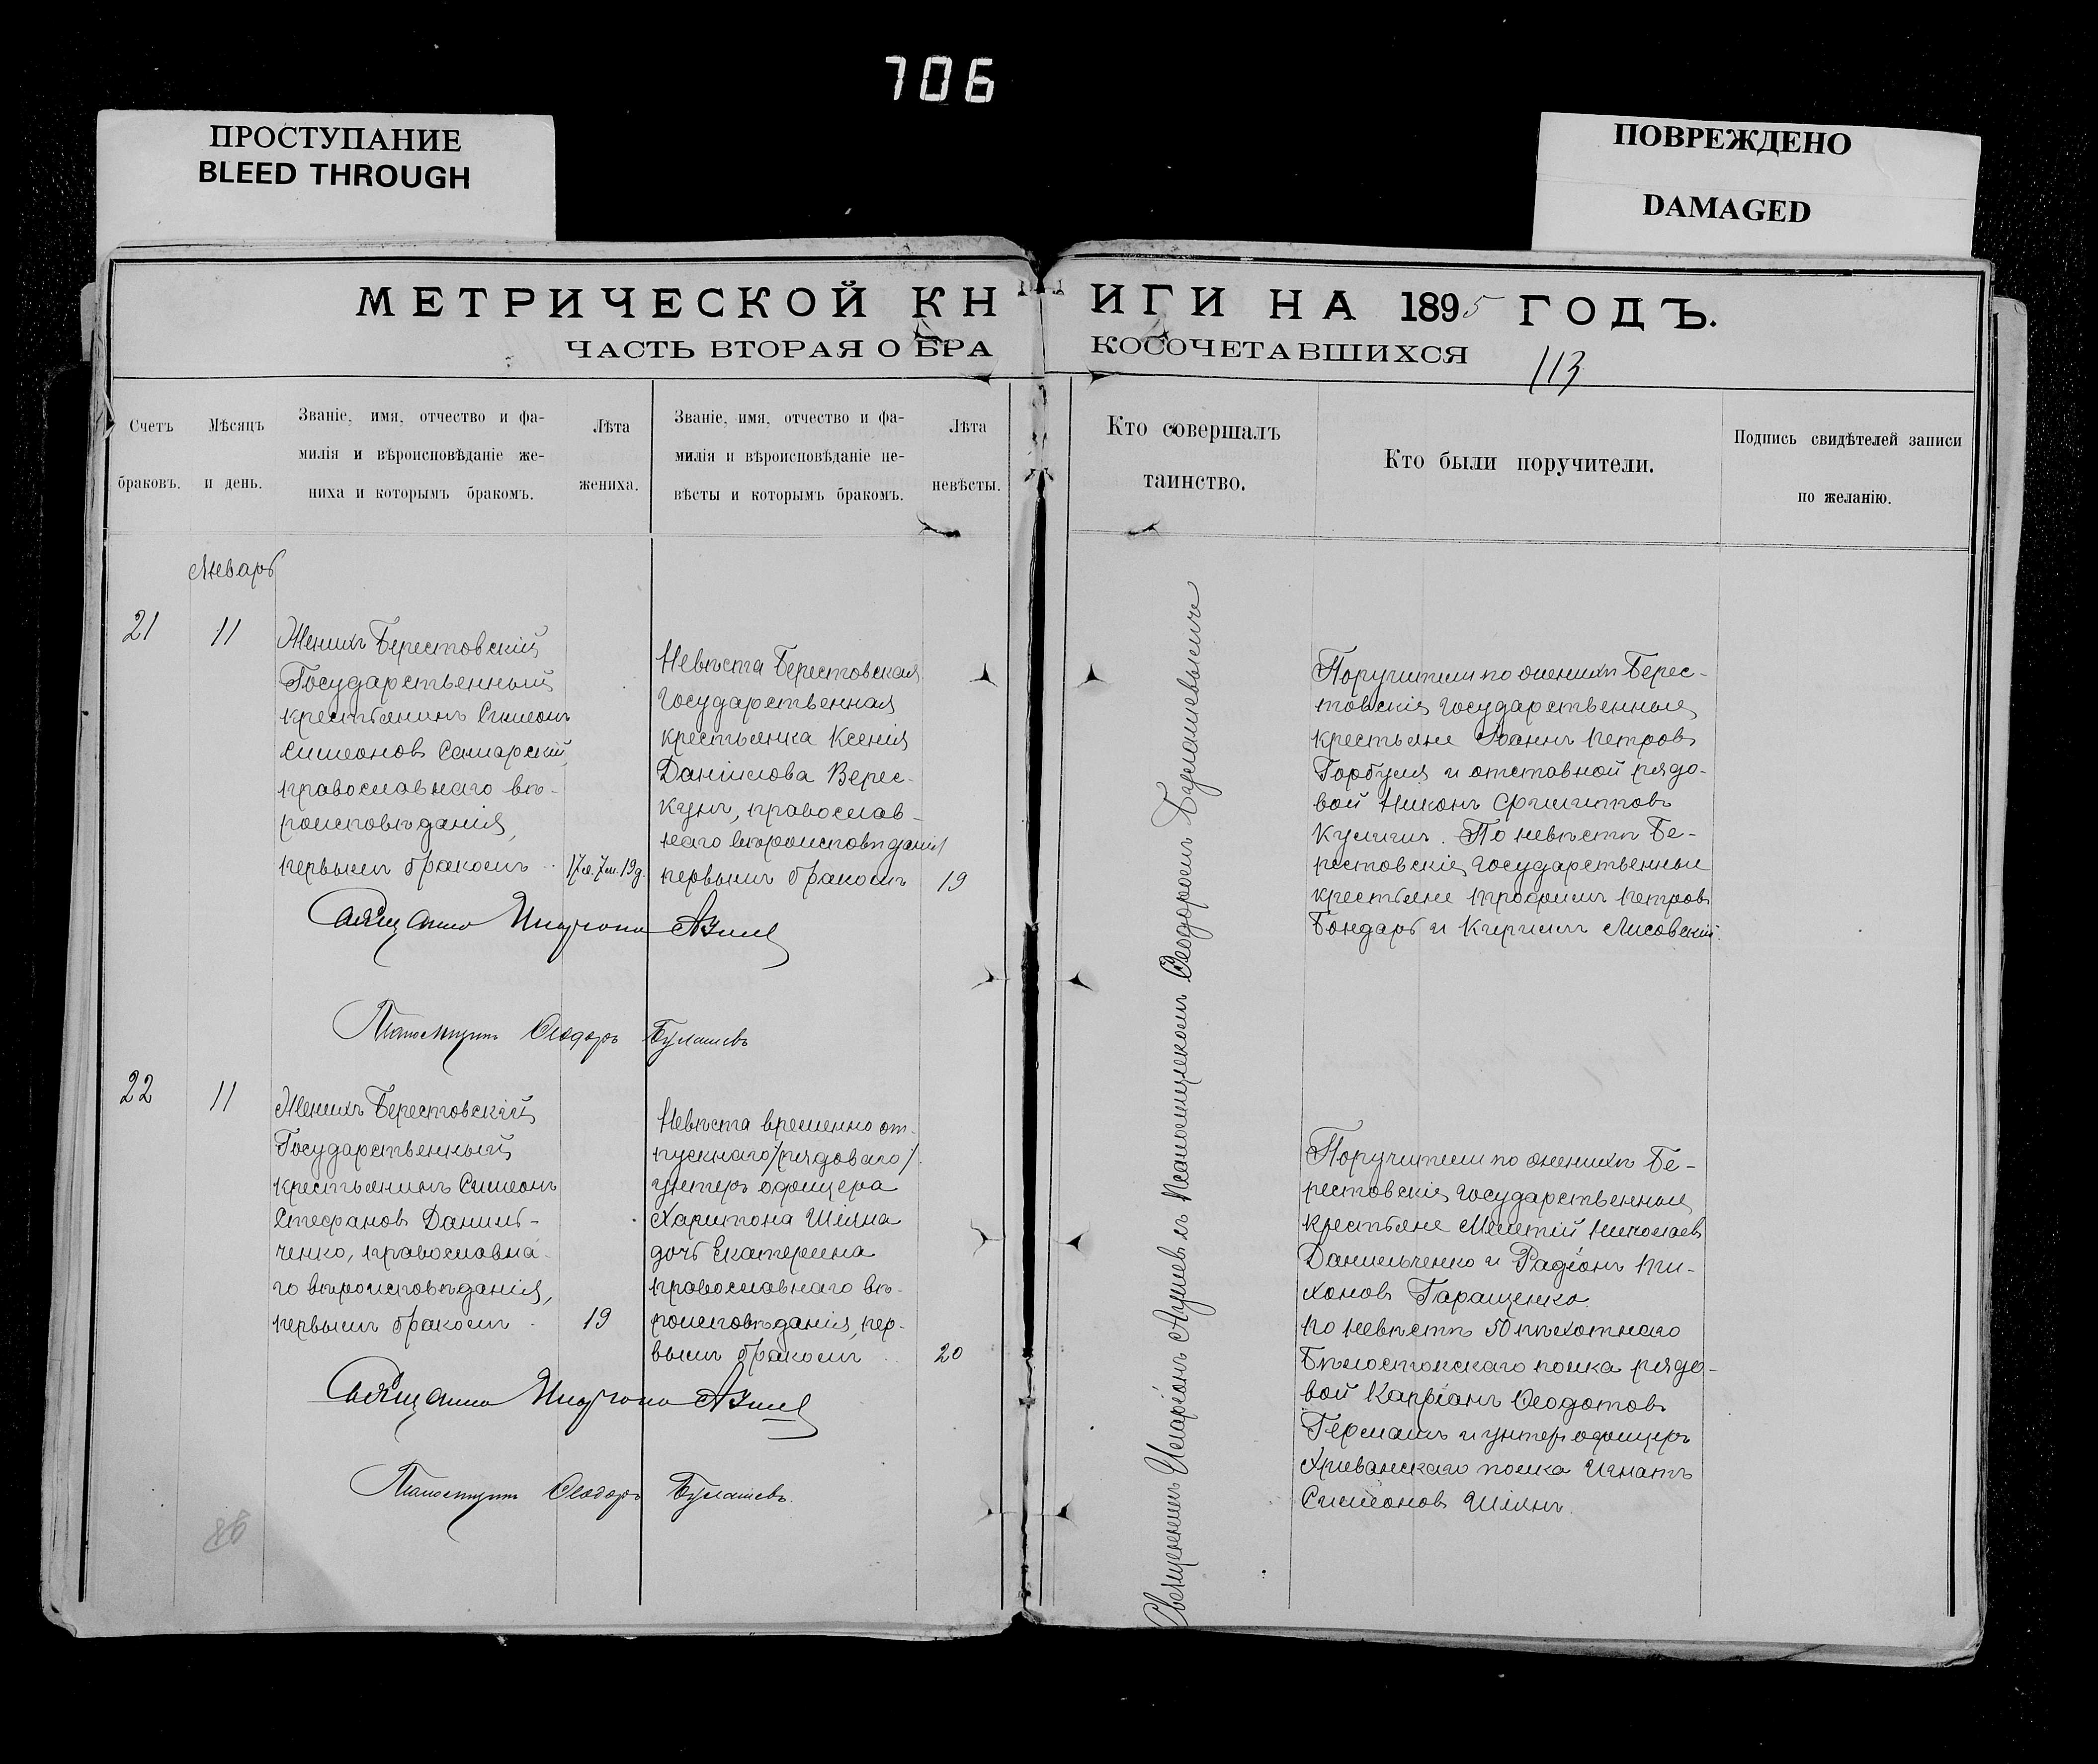 706
ПРОСТУПАНИЕ
BLEED THROUGH
ПОВРЕЖДЕНО
DAMAGED
МЕТРИЧЕСКОЙ КНИГИ НА 1895 ГОДЪ.
ЧАСТЬ ВТОРАЯ О БРАКОСОЧЕТАВШИХСЯ
113
Счетъ
браковъ.
Мѣсяцъ
и день.
Званіе, имя, отчество и фа-
милія и вѣроисповѣданіе же-
ниха и которымъ бракомъ.
Лѣта
жениха.
Званіе, имя, отчество и фа-
милія и вѣроисповѣданіе не-
вѣсты и которымъ бракомъ.
Лѣта
невѣсты.
Кто совершалъ
таинство.
Кто были поручители.
Подпись свидѣтелей записи
по желанію.
Январь
21
11
Женихъ Берестовскій
Государственный
крестьянинъ Симеонъ
Симеоновъ Самарскій,
православнаго вѣ-
роисповѣданія,
первымъ бракомъ
17л. 7м. 19д.
Невѣста Берестовская
Государственная
крестьянка Ксенія
Даніилова Верес-
кунъ, православ-
наго вѣроисповѣданія
первымъ бракомъ
19
Поручители по женихѣ Берес-
товскіе Государственные
крестьяне Іоаннъ Петровъ
Горбуля и отставной рядо-
вой Никонъ Филипповъ
По невѣстѣ Бе-
рестовскіе Государственные
крестьяне Трофимъ Петровъ
Бондарь и Кириллъ Лисовскій.
Священникъ
Псаломщикъ Ѳеодоръ Булашевъ
22
11
Женихъ Берестовскій
Государственный
крестьянинъ Симеонъ
Стефановъ Даниль-
ченко, православна-
го вѣроисповѣданія,
первымъ бракомъ
19
Невѣста временно от-
пускнаго /рядоваго/
унтеръ офицера
Харитона Шияна
дочь Екатерина
православнаго вѣ-
роисповѣданія, пер-
вымъ бракомъ
20
Поручители по женихѣ Бе-
рестовскіе Государственные
крестьяне Николаевъ
Данильченко и Радіонъ Ти-
хоновъ Гаращенко.
по невѣстѣ 50 пѣхотнаго
Бѣлостокскаго полка рядо-
вой Ѳеодотовъ
Германъ и унтеръ офицеръ
полка Игнатъ
Симеоновъ Шиянъ.
Священникъ
Псаломщикъ Ѳеодоръ Булашевъ.
Священникъ Иларіонъ съ Псаломщикомъ Ѳеодоромъ Булашевымъ